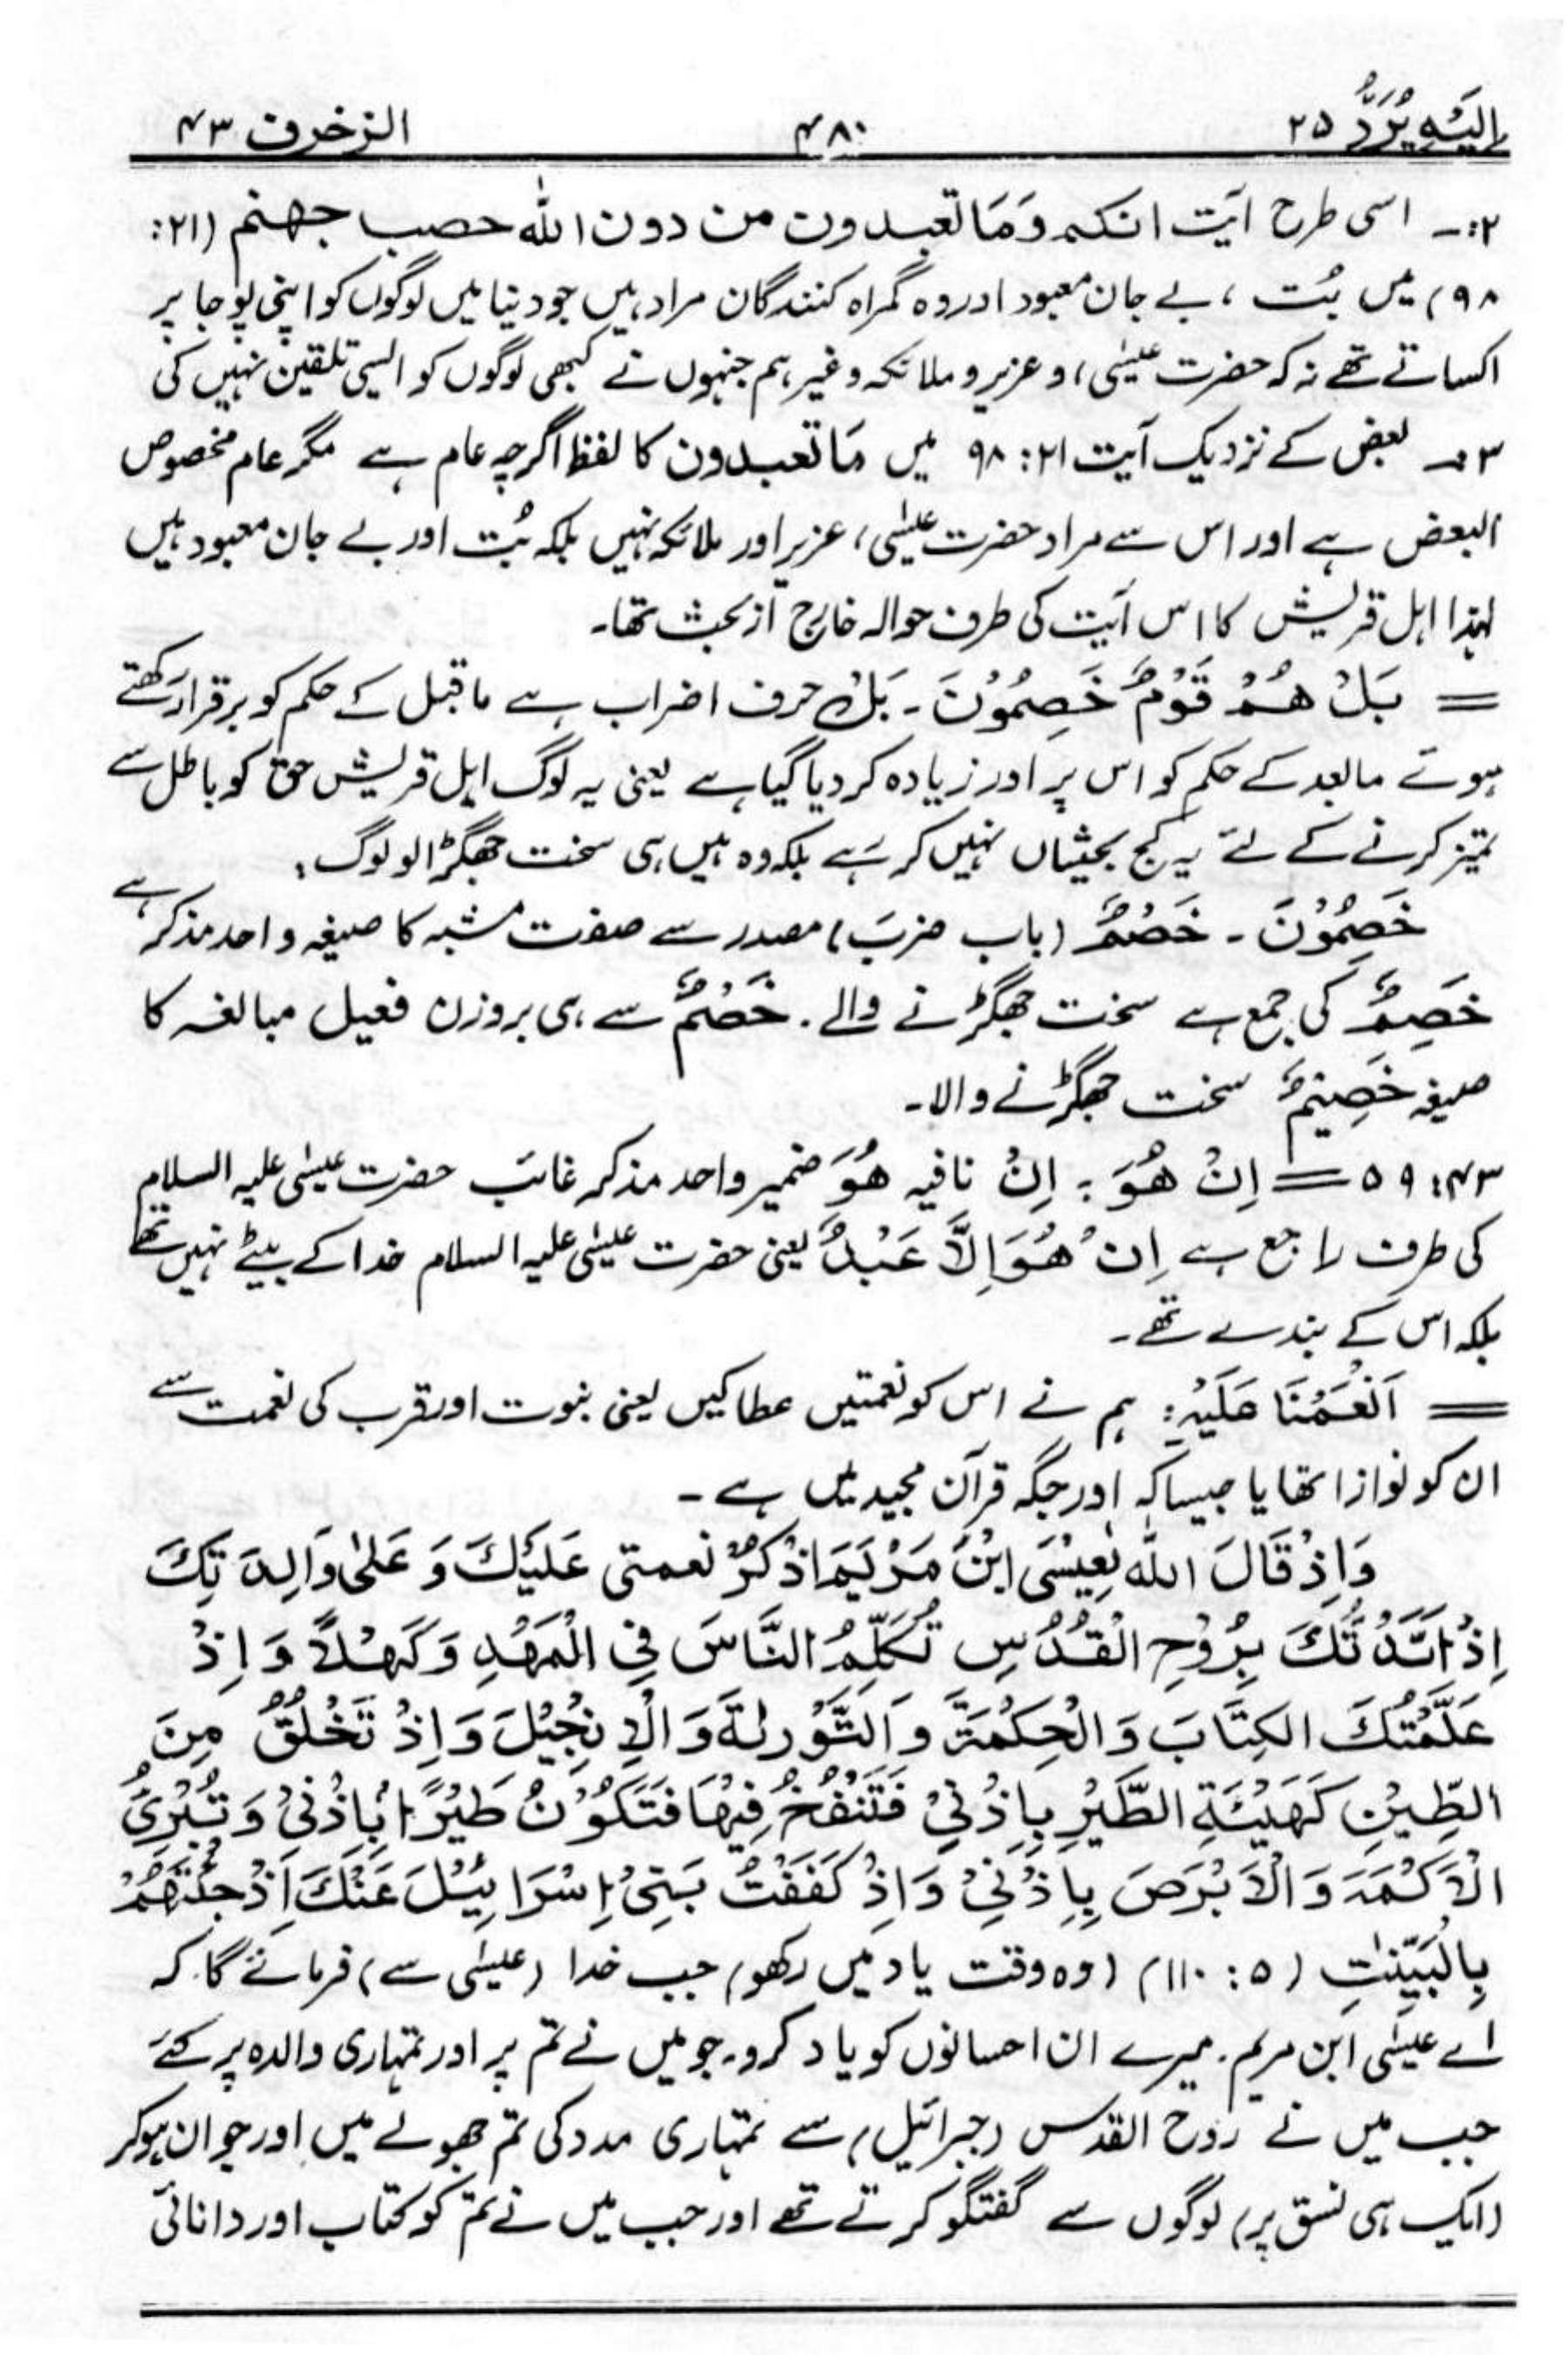 اِلَیْہِ یُرَدُّ ۲۵ ۴۸۰ الزخرف ۴۳
۲:۔ اسی طرح آیت انکم وَمَا تعبدون من دون اللّٰہ حصب جہنم (۲۱:
۹۸) میں بُت ، بے جان معبود اور وہ گمراہ کنندگان مراد ہیں جو دنیا میں لوگوں کو اپنی پوجا پر
اکساتے تھے نہ کہ حضرت عیسٰی، و عزیر و ملائکہ وغیرہم جنہوں نے کبھی لوگوں کو ایسی تلقین نہیں کی
۳۔ بعض کے نزدیک آیت ۲۱: ۹۸ میں مَا تعبدون کا لفظ اگرچہ عام ہے مگر عام مخصوص
البعض ہے اور اس سے مراد حضرت عیسٰی، عزیر اور ملائکہ نہیں بلکہ بُت اور بے جان معبود ہیں
لہٰذا اہل قریش کا اس آیت کی طرف حوالہ خارج از بحث تھا۔
= بَلْ ھُمْ قَوْمٌ خَصِمُوْنَ ۔ بَلْ حرف اضراب ہے ماقبل کے حکم کو برقرار رکھتے
ہوتے مابعد کے حکم کو اس پر اور زیادہ کر دیا گیا ہے یعنی یہ لوگ اہل قریش حق کو باطل سے
تمیز کرنے کے لئے یہ کج بحثیاں نہیں کر رہے بلکہ وہ ہیں ہی سخت جھگڑالو لوگ،
خَصِمُوْنَ ۔ خَصْمٌ (باب ضربَ) مصدر سے صفت مشبہ کا صیغہ واحد مذکر ہے
خَصِمٌ کی جمع ہے سخت جھگڑنے والے . خَصْمٌ سے ہی بروزن فعیل مبالغہ کا
صیغہ خَصِیْمٌ سخت جھگڑنے والا۔
۴۳: ۵۹ = اِنْ ھُوَ : اِنْ نافیہ ھُوَ ضمیر واحد مذکر غائب حضرت عیسٰی علیہ السلام
کی طرف راجع ہے اِنْ ھُوَ اِلَّا عَبْدٌ یعنی حضرت عیسٰی علیہ السلام خدا کے بیٹے نہیں تھے
بلکہ اس کے بندے تھے۔
= اَنْعَمْنَا عَلَیْہِ: ہم نے اس کو نعمتیں عطا کیں یعنی نبوت اور قرب کی نعمت سے
ان کو نوازا تھا یا جیسا کہ اور جگہ قرآن مجید میں ہے ۔
وَاِذْ قَالَ اللّٰہ یٰعِیْسَی ابْنَ مَرْیَمَ اذْکُرْ نعمتی عَلَیْکَ وَ عَلٰی وَالِدَ تِکَ
اِذْ اَیَّدْ تُّکَ بِرُوْحِ الْقُدُسِ تُکَلِّمُ النَّاسَ فِی الْمَھْدِ وَ کَھْلًا وَ اِذْ
عَلَّمْتُکَ الکِتَابَ وَ الْحِکْمَۃَ وَ التَّوْرٰىۃَ وَ الْاِ نِجِیْلَ وَ اِذْ تَخْلُقُ مِنَ
الطِّیْنِ کَھَیْئَۃِ الطَّیْرِ بِاِذْنِیْ فَتَنْفُخُ فِیْھَا فَتَکُوْنُ طَیْرًا بِاِذْنِیْ وَ تُبْرِئُ
الْاَکْمَہَ وَ الْاَ بْرَصَ بِاِذْنِیْ وَ اِذْ کَفَفْتُ بَنِیْ اِسْرَا ئِیْلَ عَنْکَ اِذْ جِئْتَھُمْ
بِالْبَیِّنٰتِ (۵: ۱۱۰) (وہ وقت یاد میں رکھو) جب خدا (عیسٰی سے) فرمائے گا. کہ
اے عیسٰی ابن مریم. میرے ان احسانوں کو یاد کرو۔ جو میں نے تم پر اور تمہاری والدہ پر کئے
جب میں نے روح القدس (جبرائیل) سے تمہاری مدد کی تم جھولے میں اور جوان ہو کر
(ایک ہی نسق پر) لوگوں سے گفتگو کرتے تھے اور جب میں نے تم کو کتاب اور دانائی